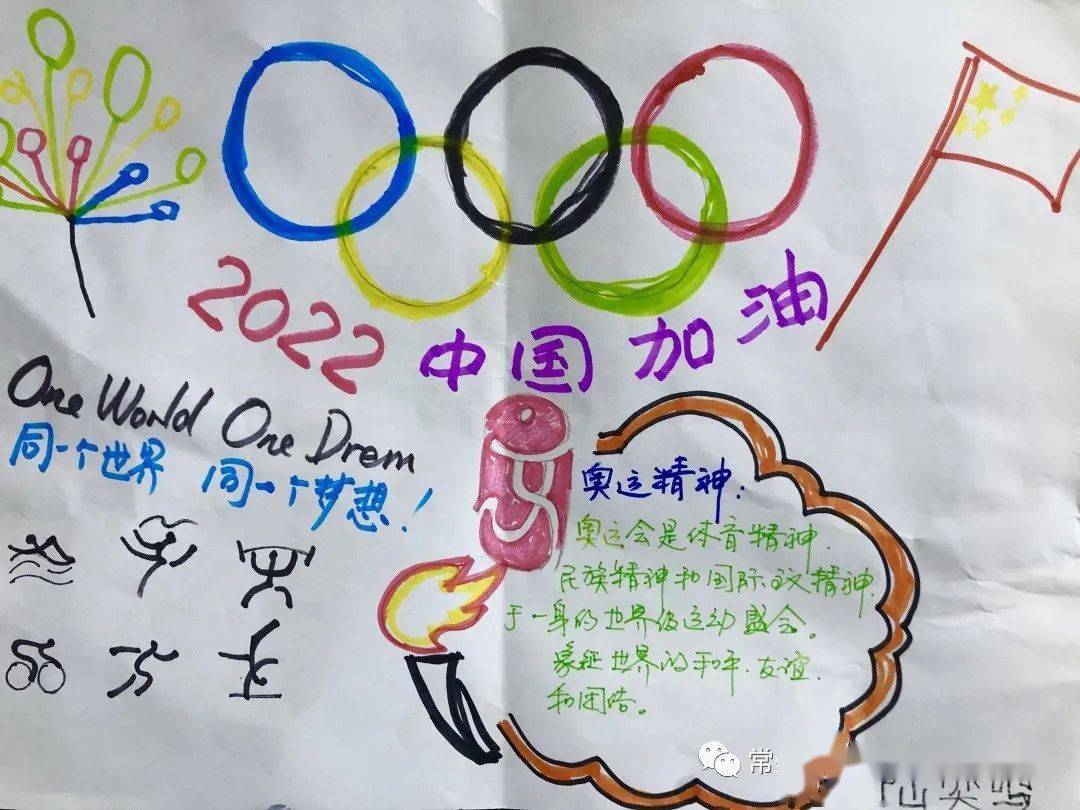 2022 中国加油
One World One Drem
同一个世界 同一个梦想!
奥运精神:
奥运会是体育精神.
民族精神和国际主义精神.
于一身的世界级运动盛会。
象征世界的和平.友谊.
和团结。
常